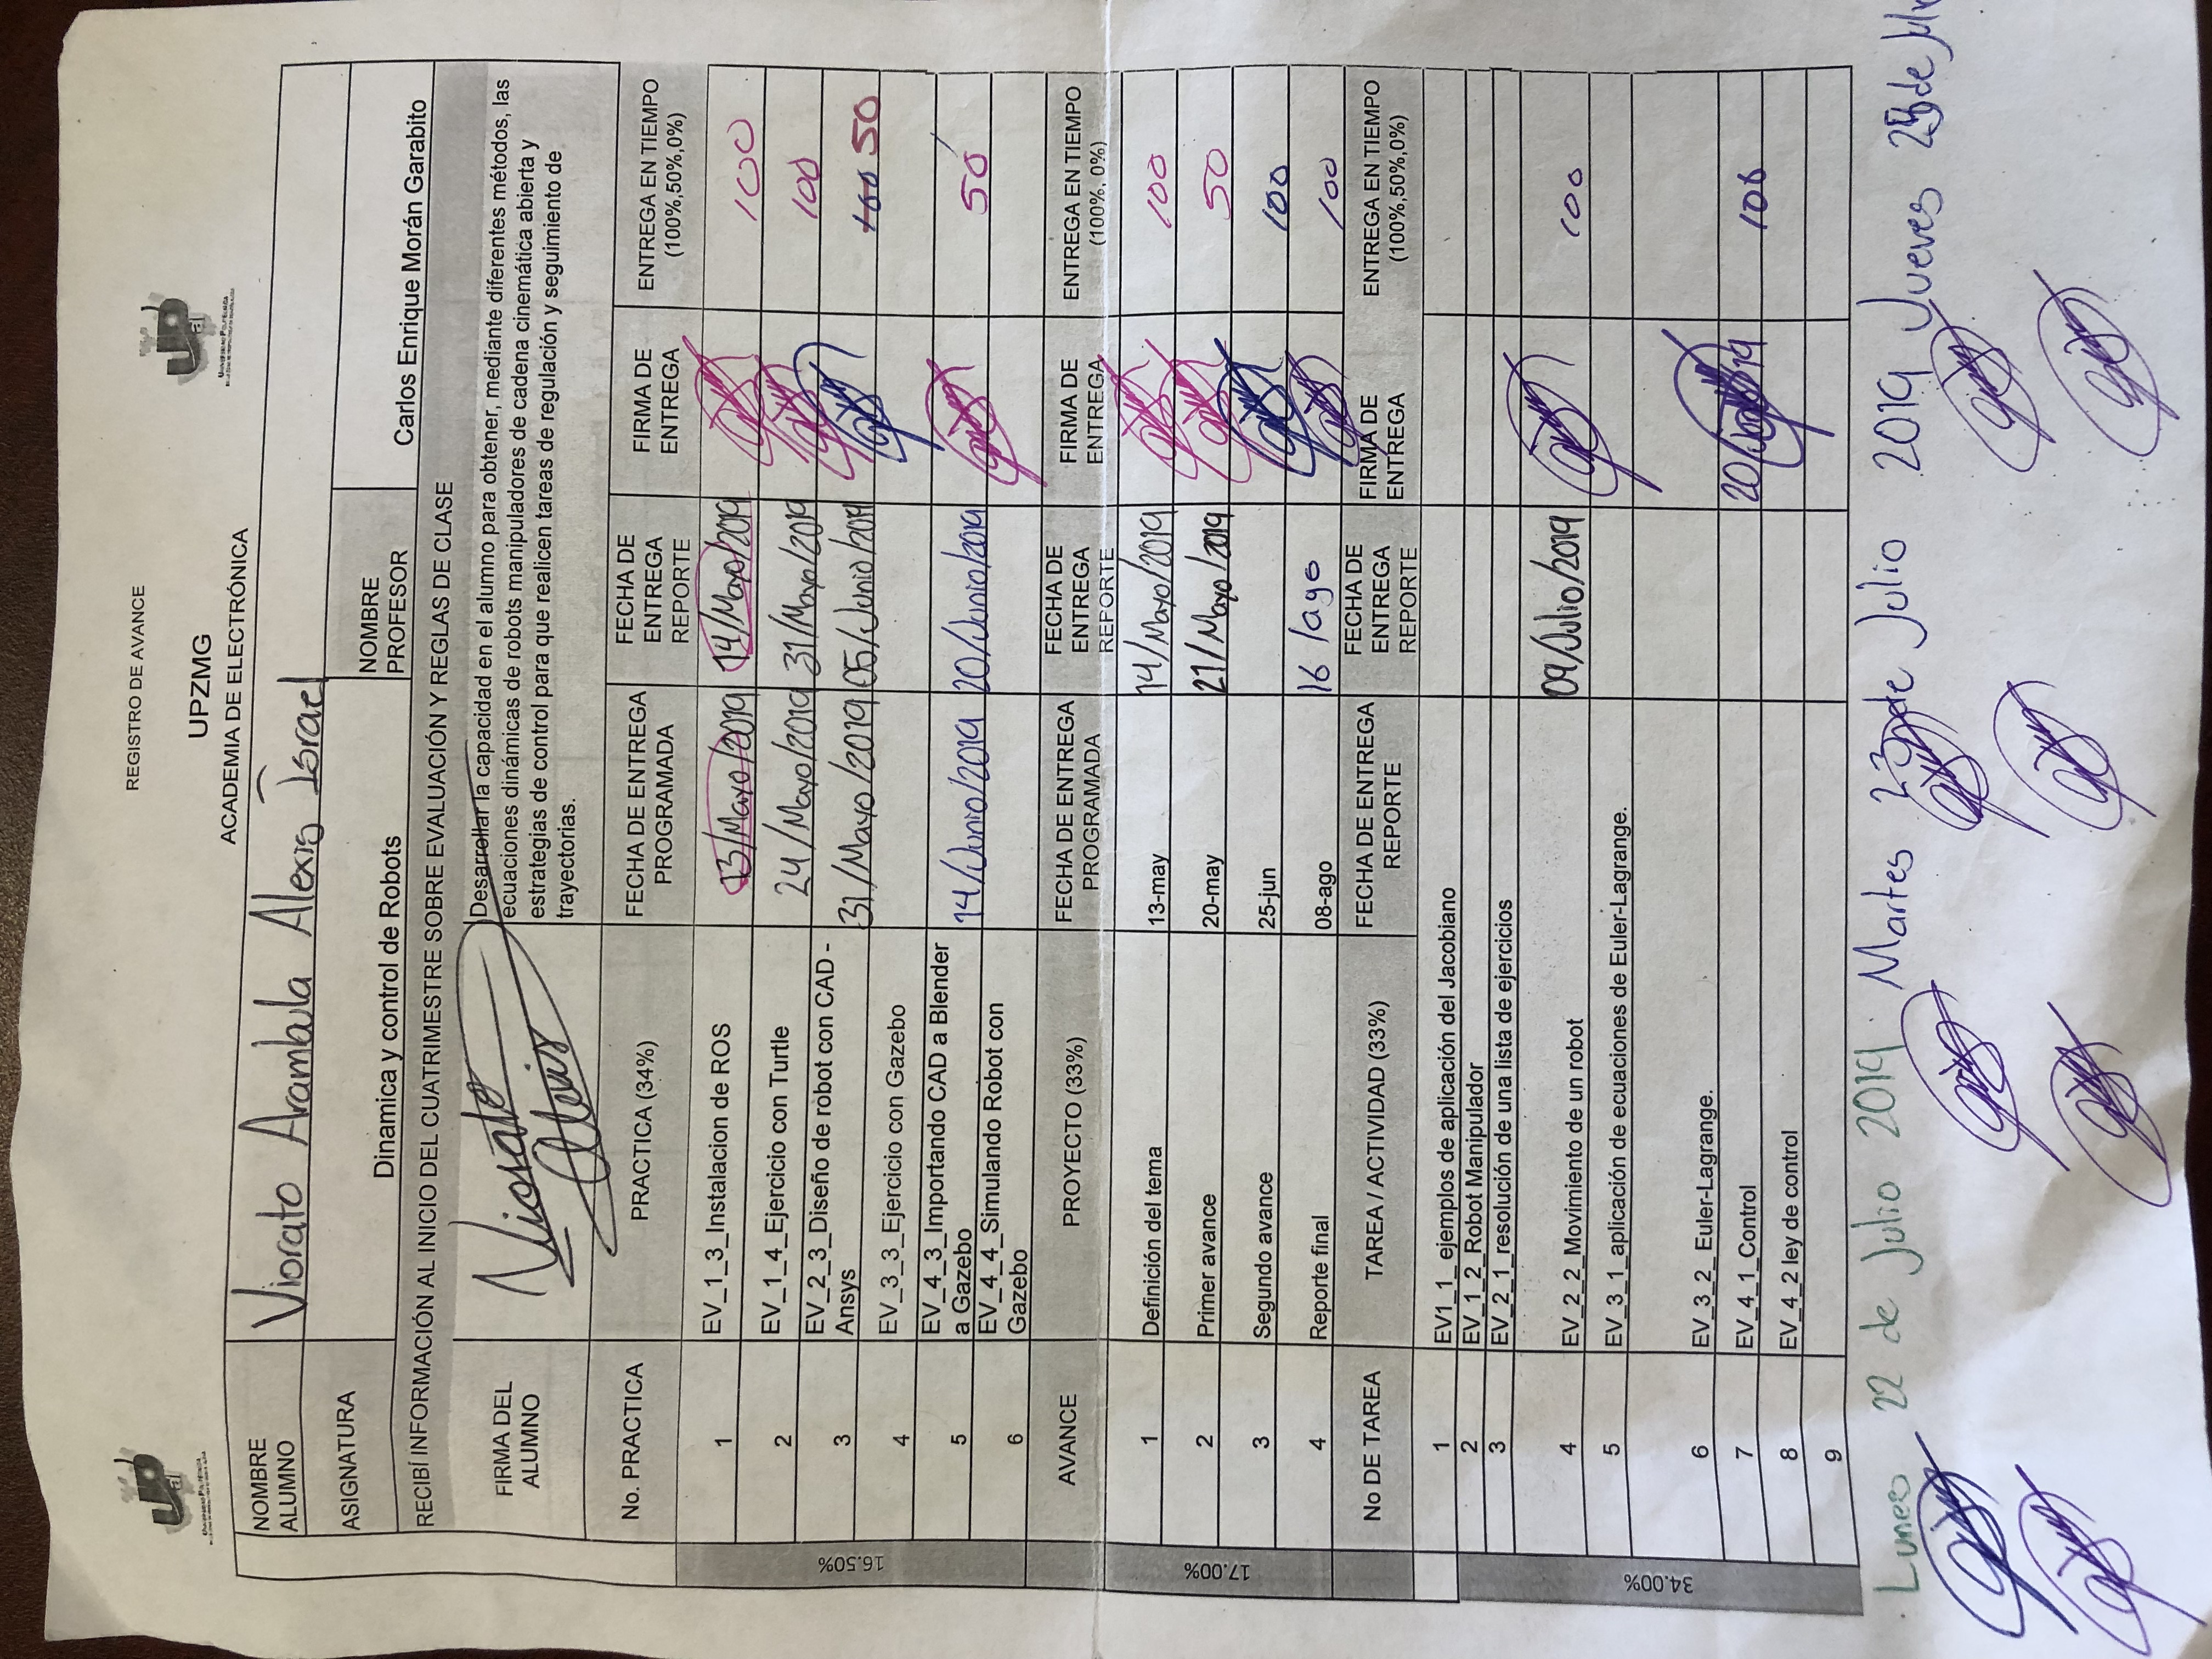 REGISTRO DE AVANCE
UPZMG
ACADEMIA DE ELECTRÓNICA
NOMBRE ALUMNO Viorato Arambula Alexis Israel
ASIGNATURA Dinamica y control de Robots NOMBRE PROFESOR Carlos Enrique Morán Garabito
RECIBÍ INFORMACIÓN AL INICIO DEL CUATRIMESTRE SOBRE EVALUACIÓN Y REGLAS DE CLASE
FIRMA DEL ALUMNO Viorato Alexis
Desarrollar la capacidad en el alumno para obtener, mediante diferentes métodos, las
ecuaciones dinámicas de robots manipuladores de cadena cinemática abierta y
estrategias de control para que realicen tareas de regulación y seguimiento de
trayectorias.
No. PRACTICA PRACTICA (34%) FECHA DE ENTREGA PROGRAMADA FECHA DE ENTREGA REPORTE FIRMA DE ENTREGA ENTREGA EN TIEMPO (100%,50%,0%)
16.50%
1 EV_1_3_Instalacion de ROS 13/Mayo/2019 14/Mayo/2019 100
2 EV_1_4_Ejercicio con Turtle 24/Mayo/2019 31/Mayo/2019 100
3 EV_2_3_Diseño de robot con CAD - Ansys 31/Mayo/2019 05/Junio/2019 100 50
4 EV_3_3_Ejercicio con Gazebo
5 EV_4_3_Importando CAD a Blender a Gazebo 14/Junio/2019 20/Junio/2019 50
6 EV_4_4_Simulando Robot con Gazebo
AVANCE PROYECTO (33%) FECHA DE ENTREGA PROGRAMADA FECHA DE ENTREGA REPORTE FIRMA DE ENTREGA ENTREGA EN TIEMPO (100%, 0%)
17.00%
1 Definición del tema 13-may 14/Mayo/2019 100
2 Primer avance 20-may 21/Mayo/2019 50
3 Segundo avance 25-jun 100
4 Reporte final 08-ago 16/ago 100
No DE TAREA TAREA / ACTIVIDAD (33%) FECHA DE ENTREGA REPORTE FECHA DE ENTREGA REPORTE FIRMA DE ENTREGA ENTREGA EN TIEMPO (100%,50%,0%)
34.00%
1 EV1_1_ ejemplos de aplicación del Jacobiano
2 EV_1_2_Robot Manipulador
3 EV_2_1_resolución de una lista de ejercicios
4 EV_2_2_Movimiento de un robot 09/Julio/2019 100
5 EV_3_1_aplicación de ecuaciones de Euler-Lagrange.
6 EV_3_2_ Euler-Lagrange.
7 EV_4_1_Control 20 19 100
8 EV_4_2 ley de control
9
Lunes 22 de Julio 2019 Martes 23 de Julio 2019 Jueves 25 de